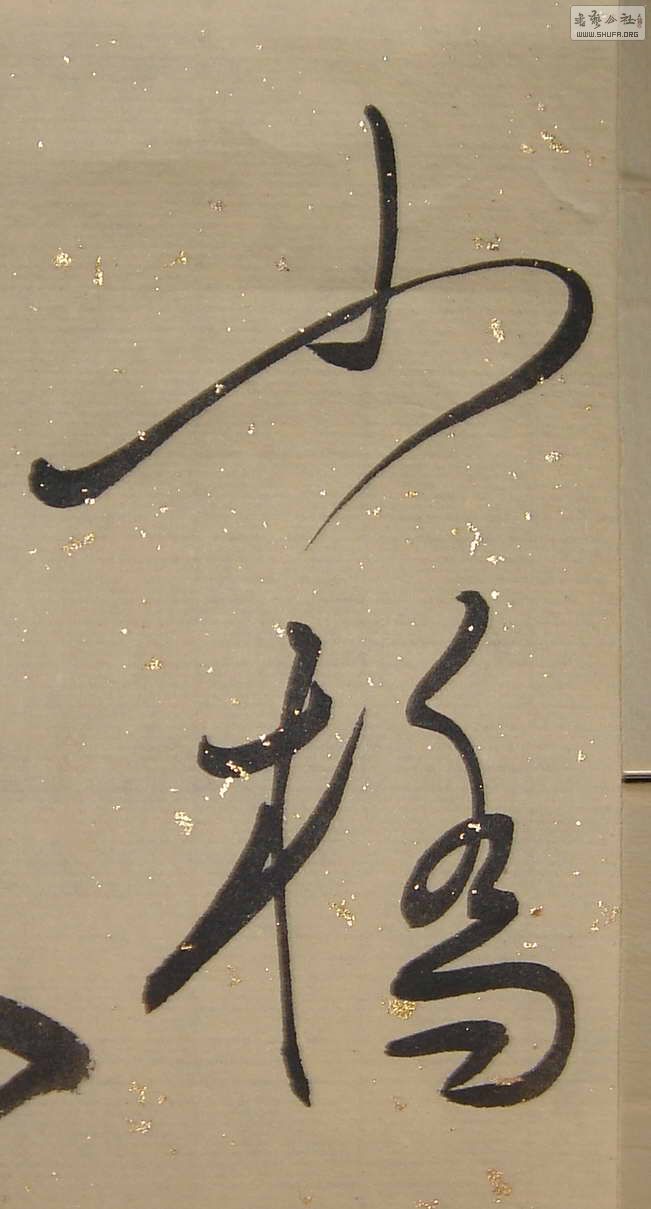 小橋
书艺公社
WWW.SHUFA.ORG